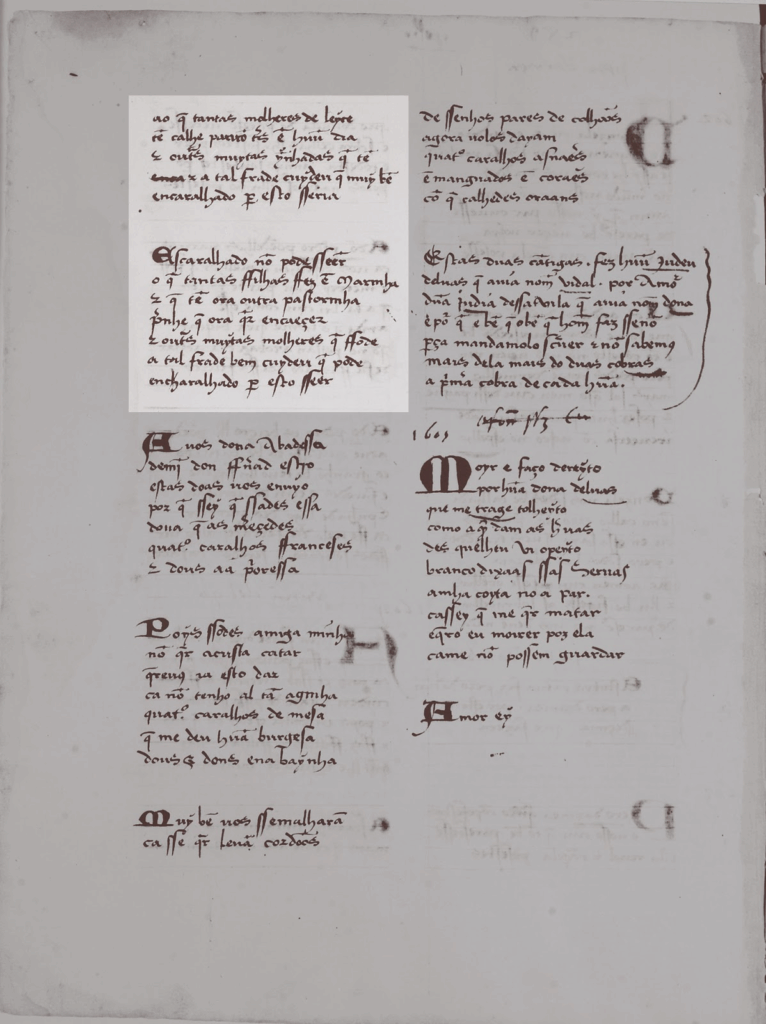 ao q̄ tantas molheres de leyte
tē calhe parirō tr̄s ē hūu dia
⁊ outr̄s muytas p̄nhadas q̄ tē
⁊ a tal frade cuydeu q̄ muy bē
encaralhado p̄ esto sseria
Escaralhado nō pode sseer
o q̄ tantas ffilhas ffez ē Marinha
⁊ q̄ tē ora outra pastorinha
p̄nhe q̄ ora q̄r encaeçer
⁊ outr̄s muytas molheres q̄ ffode
a tal frade bem cuydeu q̄ pode
encharalhado p̄ esto sseer
A uos dona Abadessa
demī don ffr̄nād esqyo
estas doas uos enuyo
por q̄ ssey q̄ ssades essa
dona q̄ as merçedes
quatᵒ. caralhos ffranceses
⁊ dous aa p̄oressa
Poys ssodes amiga minha
nō q̄r acusta catar
q̄reuꝯ ia esto dar
ca nō tenho al tā aginha
quatᵒ. caralhos de mesa
q̄ me deu hūa burgesa
dous ⁊ dous ena baynha
Muy bē uos ssemalharā
ca sse q̄r leuā cordōes
de ssenhos pares de colhoōs
agora uolos dayam
quatᵒ caralhos asnaēs
ēmanguados ē coraēs
cō q̄ calhedes
Estas duas cātigas. fez hūu Judeu
deluas q̄ auia nom̄ Vidal. por Amor̄
dūa iudia dessa uila q̄ auia nom̄ dona
⁊ por q̄ ē bē q̄ obē q̄ hom̄ faz sseno
pça mandamolo sc̄uer ⁊ nō sabemꝯ
mais dela mais do duas cobras
a p̄mr̄a cobra de cada hūa.
1605
Moyr e faço dereyto
por hūa dona deluas
que me trage tolheyto
como a q̄ dam as heruas
des quelheu vi opeyto
branco
amha coyta no a par.
cassey q̄ me q̄r matar
eq̄ro eu morer poz ela
came nō possem guardar
Amor ey